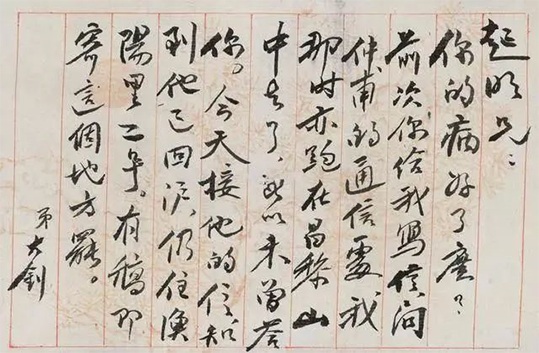 起明兄：
你的病好了麽？
前次你给我寫信问
仲甫的通信處我
那时亦跑在昌黎山
中去了，所以未曾答
你。今天接他的信知
到他已回沪，仍住漁
陽里二号。有稿即
寄這個地方罷。
弟大釗